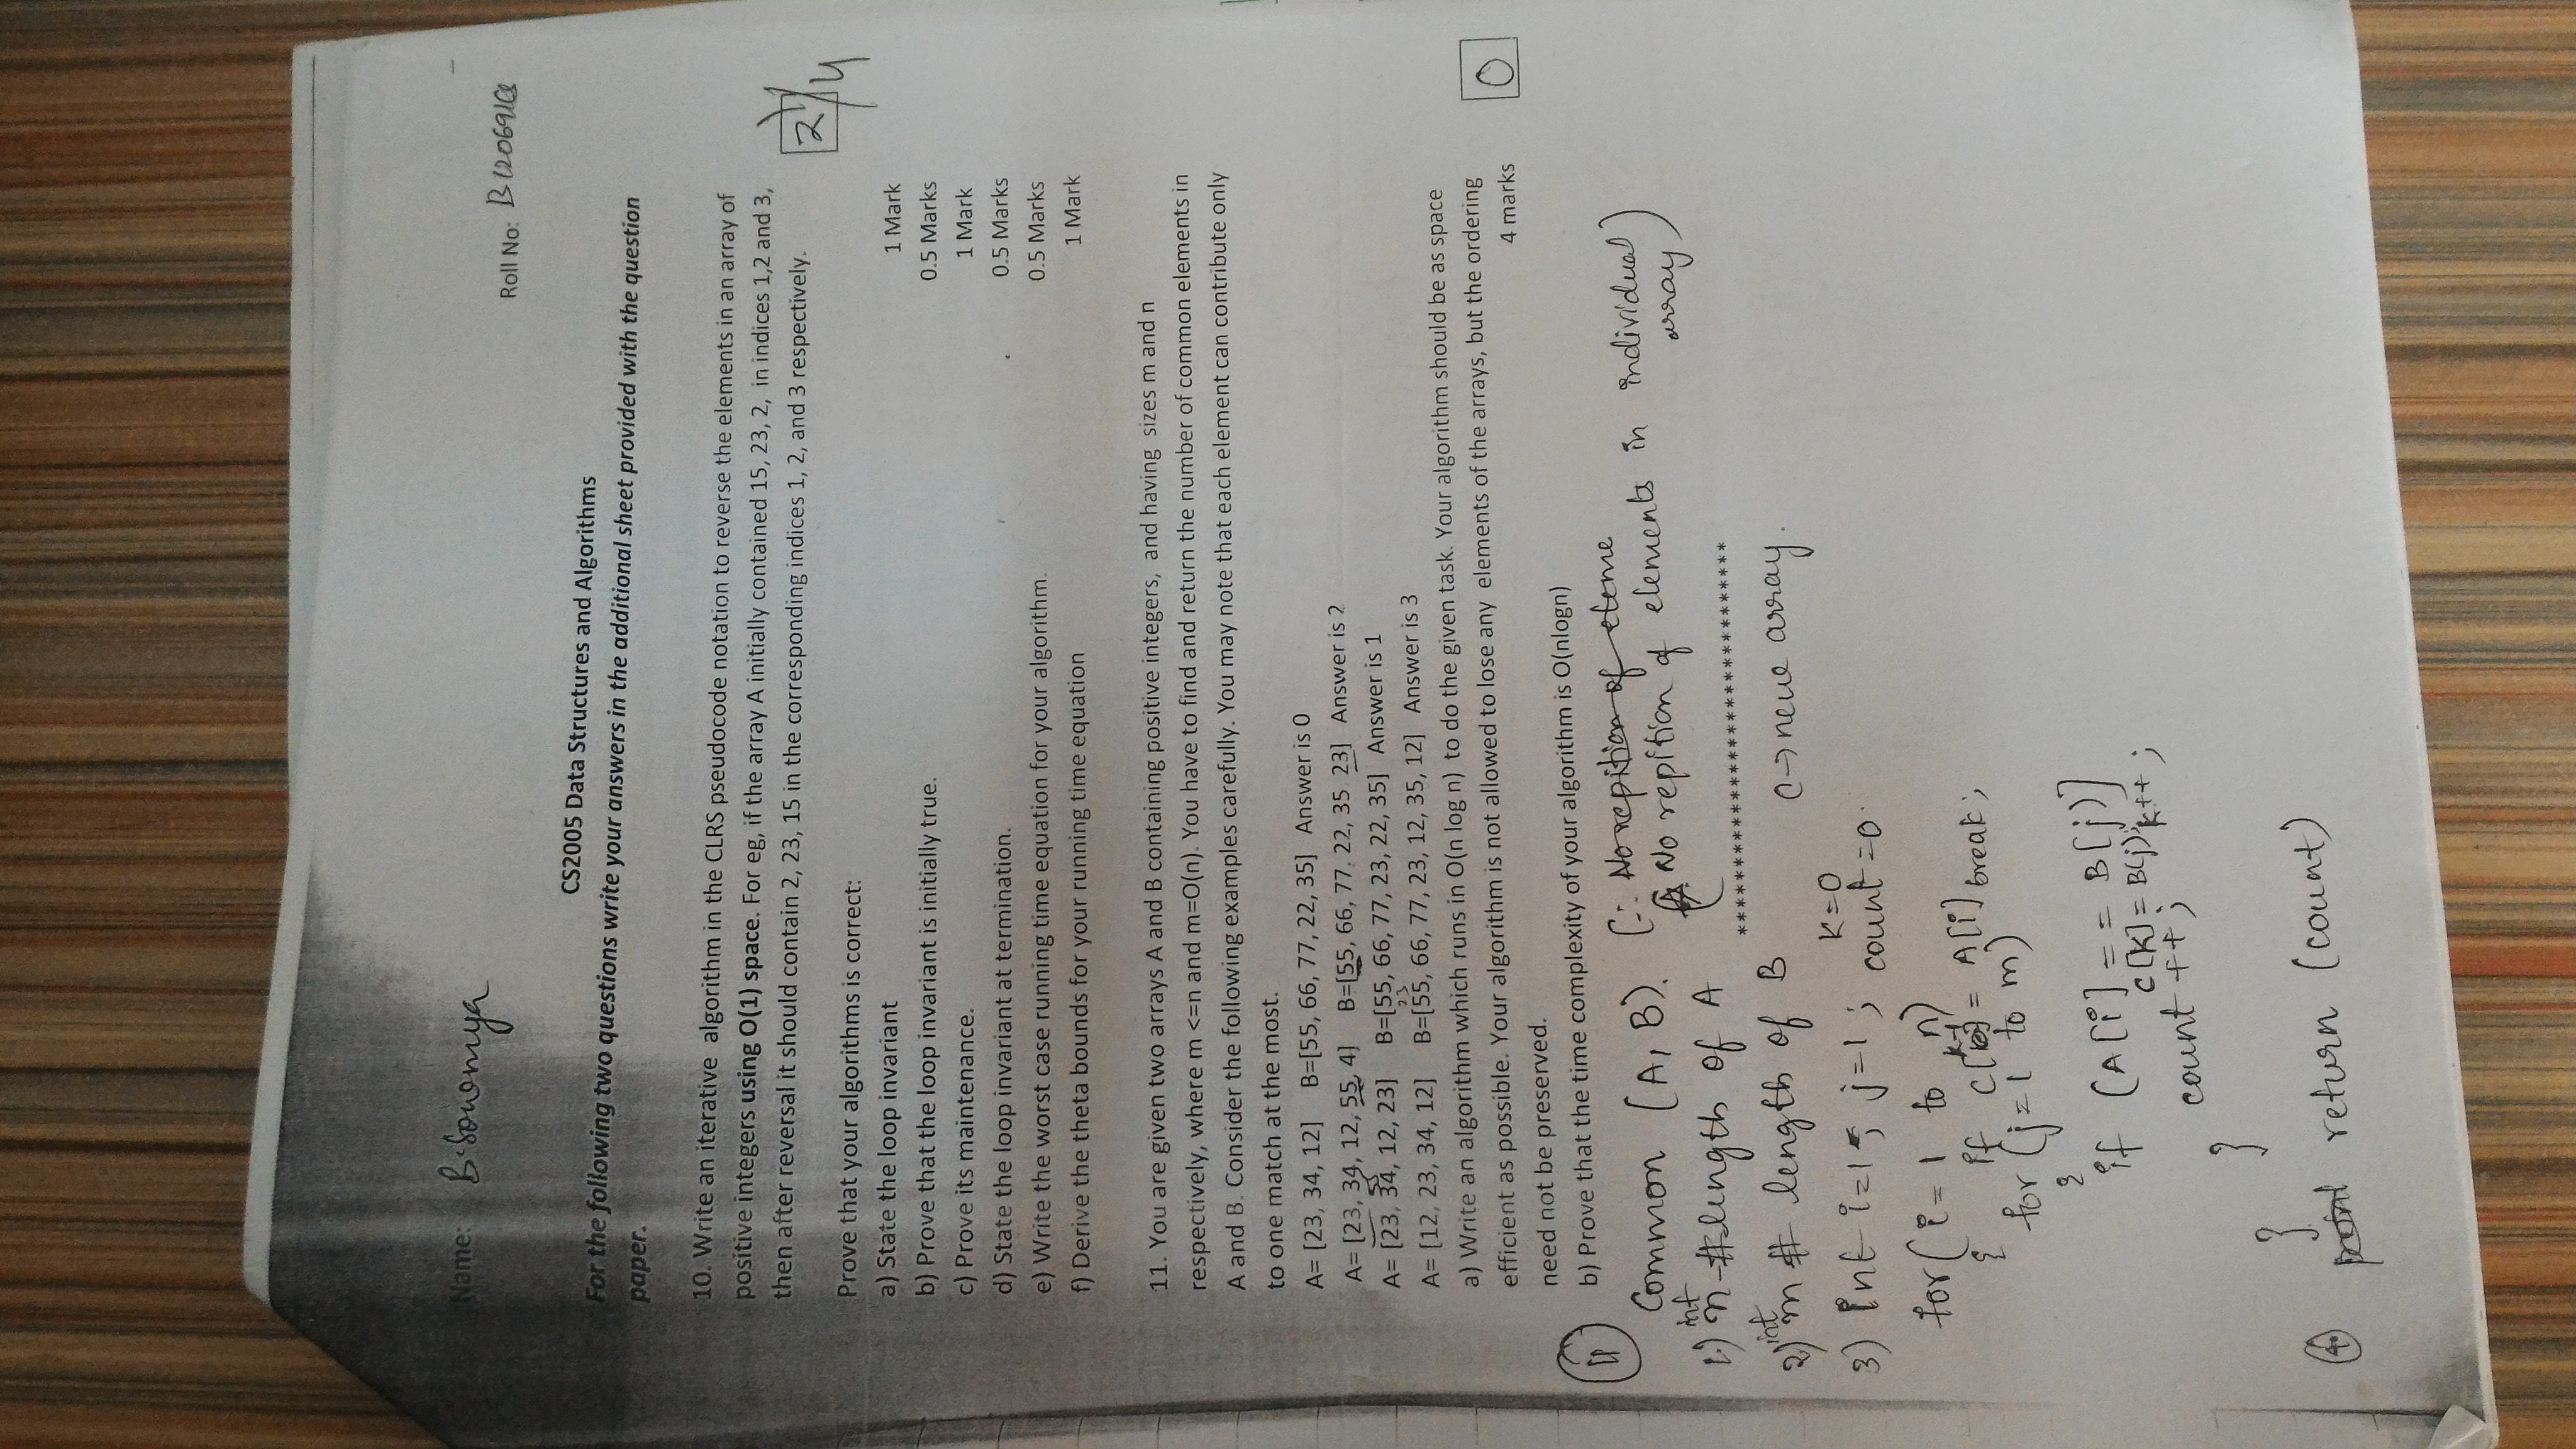 Name: B. Sowmya
Roll No:
CS2005 Data Structures and Algorithms
For the following two questions write your answers in the additional sheet provided with the question
paper.
10. Write an iterative algorithm in the CLRS pseudocode notation to reverse the elements in an array of
positive integers using O(1) space. For eg, if the array A initially contained 15, 23, 2, in indices 1,2 and 3,
then after reversal it should contain 2, 23, 15 in the corresponding indices 1, 2, and 3 respectively.
2 1/4
Prove that your algorithms is correct:
a) State the loop invariant 1 Mark
b) Prove that the loop invariant is initially true. 0.5 Marks
c) Prove its maintenance. 1 Mark
d) State the loop invariant at termination. 0.5 Marks
e) Write the worst case running time equation for your algorithm. 0.5 Marks
f) Derive the theta bounds for your running time equation 1 Mark
11. You are given two arrays A and B containing positive integers, and having sizes m and n
respectively, where m <=n and m=O(n). You have to find and return the number of common elements in
A and B. Consider the following examples carefully. You may note that each element can contribute only
to one match at the most.
A= [23, 34, 12] B=[55, 66, 77, 22, 35] Answer is 0
A= [23, 34, 12, 55, 4] B=[55, 66, 77. 22, 35 23] Answer is 2
A= [23, 34, 12, 23] B=[55, 66, 77, 23, 22, 35] Answer is 1
A= [12, 23, 34, 12] B=[55, 66, 77, 23, 12, 35, 12] Answer is 3
a) Write an algorithm which runs in O(n log n) to do the given task. Your algorithm should be as space
efficient as possible. Your algorithm is not allowed to lose any elements of the arrays, but the ordering
need not be preserved. 4 marks
0
b) Prove that the time complexity of your algorithm is O(nlogn)
11 Common (A, B). (∵ No repition of eleme
No repition of elements in individual array)
********************************
1) int n # length of A
2) int m # length of B C→ new array.
3) int i=1; j=1; k=0 count=0.
for (i=1 to n)
{ if C[k-1] = A[i] break;
for (j=1 to m)
{
if (A[i] == B[j])
C[k]=B(j); k++;
count ++;
}
}
4. print return (count)